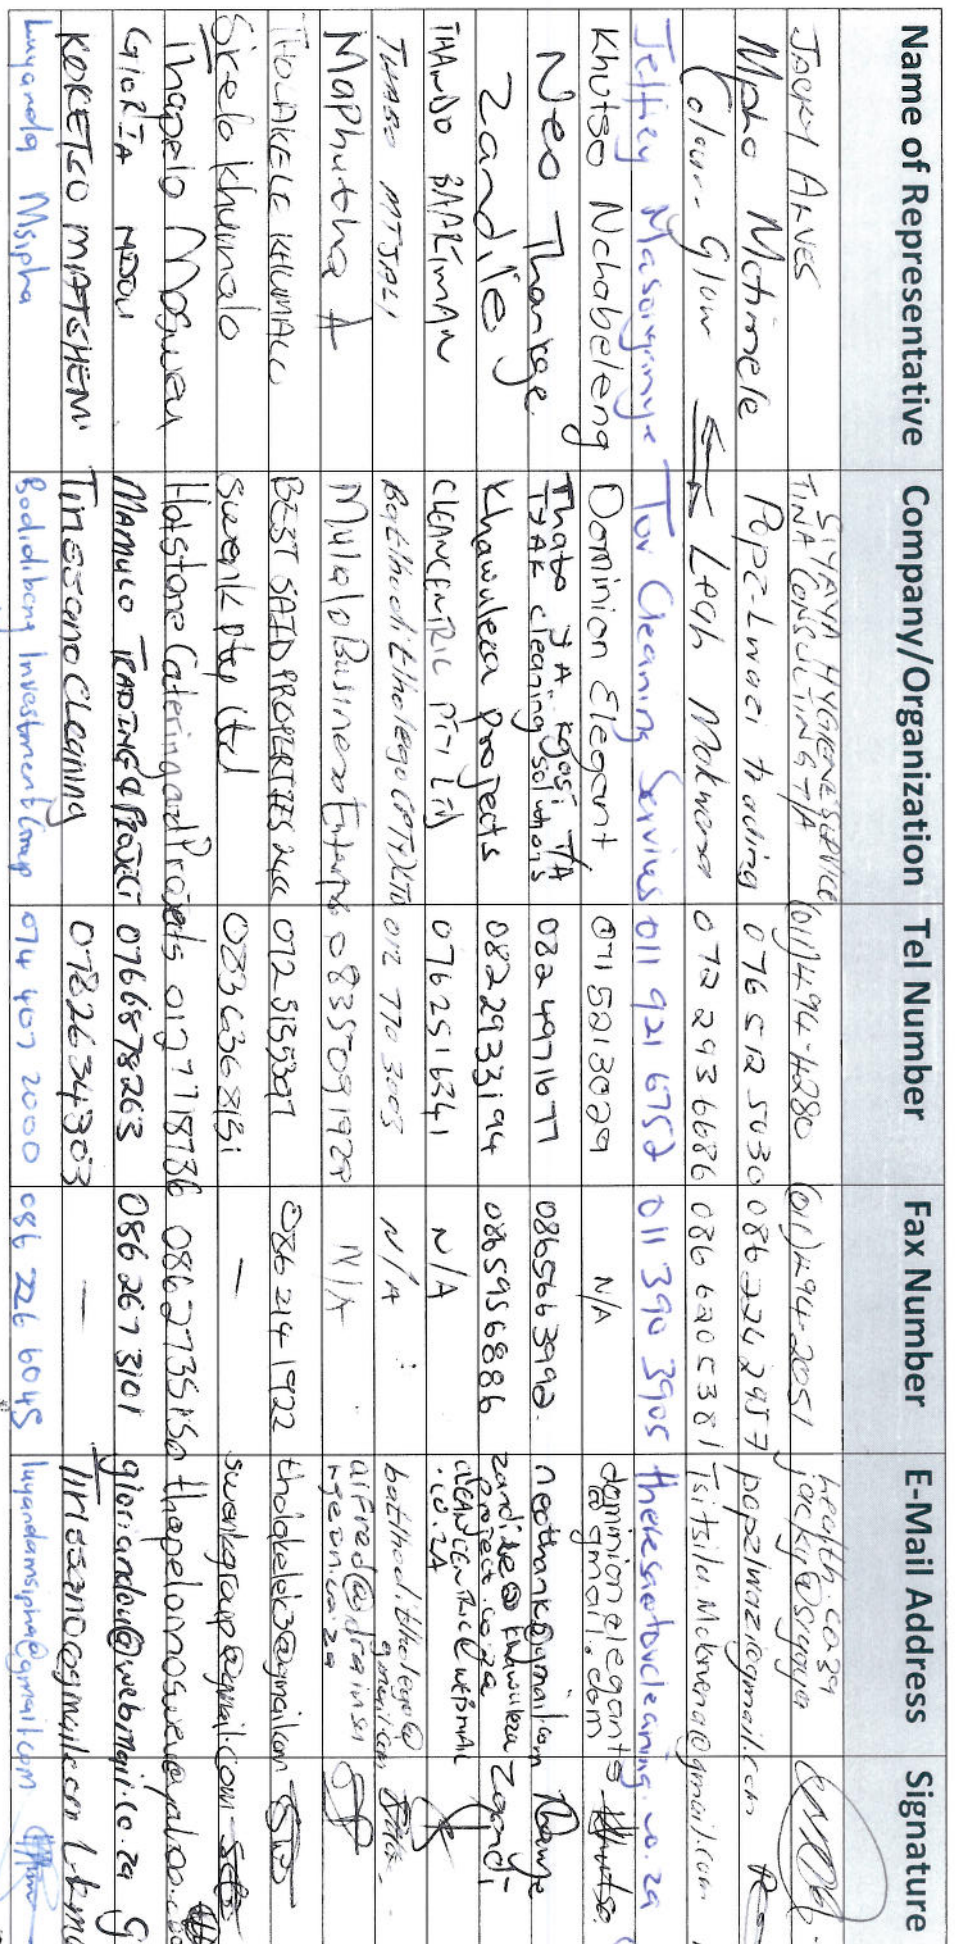 Name of Representative Company/Organization Tel Number Fax Number E-Mail Address Signature
JACKY ARVES SIYAYA HYGIENE SERVICE TINA CONSULTING T/A (011) 494-4280 (011) 494-2051 jacky@siyaya health.co.za
Mpho Motimele Popz-Lwazi trading 076 512 5030 086 224 2957 popzlwazi@gmail.com
Colour Glow Leah Mokwena 072 293 6686 086 620 5381 Tsitsilu.Mokwena@gmail.com
Jeffrey Masonganye Tov Cleaning Services 011 921 6752 011 390 3905 theresa@tovcleaning.co.za
Khutso Nchabeleng Dominion Elegant 0715213029 N/A dominionelegants @gmail.com Khutso
Neo Thankge Thato YA kgosi T/A TYAK cleaning solutions 0324971677 0865663992 neothank@gmail.com
Zandile Khawuleza projects 0822933194 0865956886 zandile@khawuleza project.co.za
THANDO BAARTMAN CLEANCENTRIC PTY LTD 0762516341 N/A CLEANCENTRIC@WEBMAIL .CO.ZA
THABO MTJALI Batlhoditlholego (PTY) LTD 012 770 3003 N/A batlhoditlholego@ gmail.com
Maphutha A Mulalo Business Enterprise 0835091929 N/A alfred@drainsu rgeon.co.za
THOLAKELE KHUMALO BEST SAID PROPERTIES 244 0725135397 086 214 1922 tholakelek3@gmail.com
Skelo khumalo Swenk pty ltd 0833636813 — swenkgroup@gmail.com
Thapelo Mosweu Hotstone Catering and Projects 0127718736 0862735150 thapelomosweu@yahoo.com
GLORIA NDOU MAMULO TRADING & PROJECT 0766878263 086 267 3101 gloriandou@webmail.co.za
KORETSO MATSHENI Tinessano Cleaning 0782634303 — Tinessano@gmail.com
Luyanda Msipha Bodidibeng Investment Group 074 407 2000 086 226 6045 luyandamsipha@gmail.com